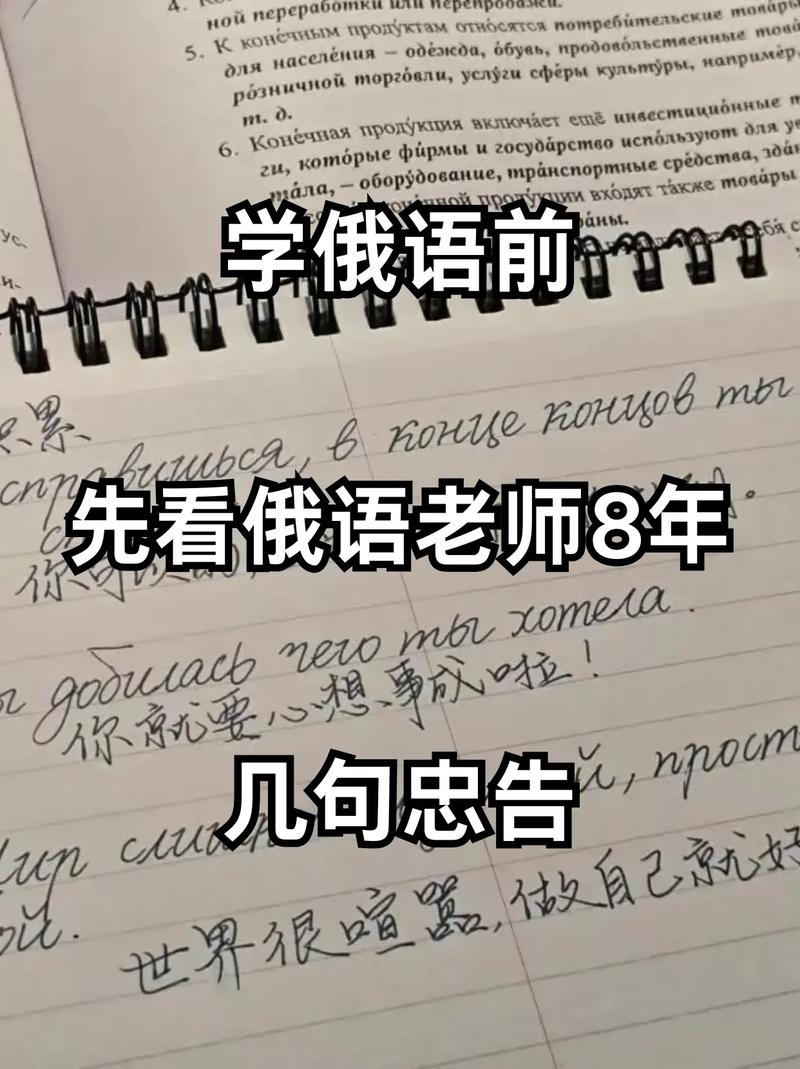 4.
ной переработки или перепродажи.
5. К конéчным продýктам отнóсятся потреби́тельские товáры
для населéния – одéжда, óбувь, продовóльственные това
рóзничной торгóвли, услýги сфéры культýры, напримéр,
т. д.
6. Конéчная продýкция включáет ещё инвестициóнные т
ги, котóрые фи́рмы и госудáрство испóльзуют для ув
тáла, – оборýдование, трáнспортные срéдства, здá
продýкции вхóдят тáкже товáры
рáны.
себя́ с
ус,
и.
学俄语前
积累
справишься, в конце концов ты
先看俄语老师8年
你可以的,
добилась чего ты хотела.
你就要心想事成啦!
几句忠告
Мир й, прост
ой.
世界很喧嚣,做自己就好